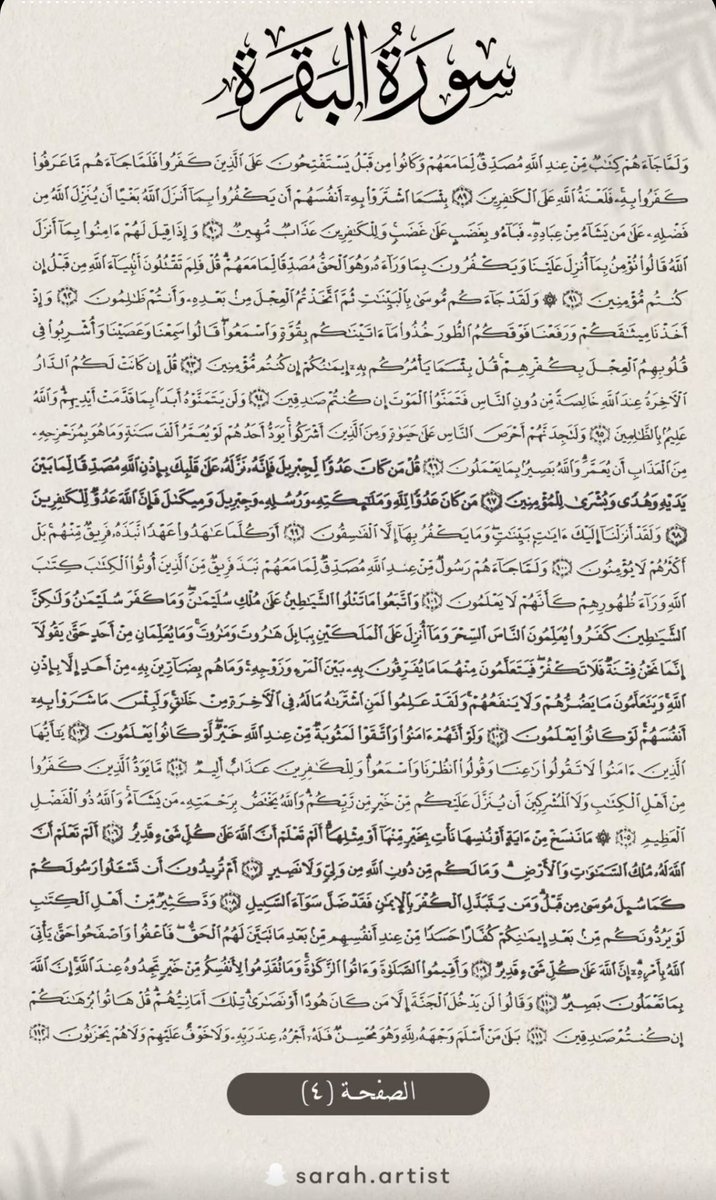 سورة البقرة
وَلَمَّا جَآءَهُمْ كِتَٰبٌ مِّنْ عِندِ اللَّهِ مُصَدِّقٌ لِّمَا مَعَهُمْ وَكَانُوا مِن قَبْلُ يَسْتَفْتِحُونَ عَلَى الَّذِينَ كَفَرُوا فَلَمَّا جَآءَهُم مَّا عَرَفُوا
كَفَرُوا بِهِۦ فَلَعْنَةُ اللَّهِ عَلَى الْكَٰفِرِينَ ﴿٨٩﴾ بِئْسَمَا اشْتَرَوْا بِهِۦٓ أَنفُسَهُمْ أَن يَكْفُرُوا بِمَآ أَنزَلَ اللَّهُ بَغْيًا أَن يُنَزِّلَ اللَّهُ مِن
فَضْلِهِۦ عَلَىٰ مَن يَشَآءُ مِنْ عِبَادِهِۦ فَبَآءُو بِغَضَبٍ عَلَىٰ غَضَبٍ وَلِلْكَٰفِرِينَ عَذَابٌ مُّهِينٌ ﴿٩٠﴾ وَإِذَا قِيلَ لَهُمْ ءَامِنُوا بِمَآ أَنزَلَ
اللَّهُ قَالُوا نُؤْمِنُ بِمَآ أُنزِلَ عَلَيْنَا وَيَكْفُرُونَ بِمَا وَرَآءَهُۥ وَهُوَ الْحَقُّ مُصَدِّقًا لِّمَا مَعَهُمْ قُلْ فَلِمَ تَقْتُلُونَ أَنۢبِيَآءَ اللَّهِ مِن قَبْلُ إِن
كُنتُم مُّؤْمِنِينَ ﴿٩١﴾ ۞ وَلَقَدْ جَآءَكُم مُّوسَىٰ بِالْبَيِّنَٰتِ ثُمَّ اتَّخَذْتُمُ الْعِجْلَ مِنۢ بَعْدِهِۦ وَأَنتُمْ ظَٰلِمُونَ ﴿٩٢﴾ وَإِذْ
أَخَذْنَا مِيثَٰقَكُمْ وَرَفَعْنَا فَوْقَكُمُ الطُّورَ خُذُوا مَآ ءَاتَيْنَٰكُم بِقُوَّةٍ وَاسْمَعُوا قَالُوا سَمِعْنَا وَعَصَيْنَا وَأُشْرِبُوا فِى
قُلُوبِهِمُ الْعِجْلَ بِكُفْرِهِمْ قُلْ بِئْسَمَا يَأْمُرُكُم بِهِۦٓ إِيمَٰنُكُمْ إِن كُنتُم مُّؤْمِنِينَ ﴿٩٣﴾ قُلْ إِن كَانَتْ لَكُمُ الدَّارُ
الْـَٔاخِرَةُ عِندَ اللَّهِ خَالِصَةً مِّن دُونِ النَّاسِ فَتَمَنَّوُا الْمَوْتَ إِن كُنتُمْ صَٰدِقِينَ ﴿٩٤﴾ وَلَن يَتَمَنَّوْهُ أَبَدًۢا بِمَا قَدَّمَتْ أَيْدِيهِمْ وَاللَّهُ
عَلِيمٌۢ بِالظَّٰلِمِينَ ﴿٩٥﴾ وَلَتَجِدَنَّهُمْ أَحْرَصَ النَّاسِ عَلَىٰ حَيَوٰةٍ وَمِنَ الَّذِينَ أَشْرَكُوا يَوَدُّ أَحَدُهُمْ لَوْ يُعَمَّرُ أَلْفَ سَنَةٍ وَمَا هُوَ بِمُزَحْزِحِهِۦ
مِنَ الْعَذَابِ أَن يُعَمَّرَ وَاللَّهُ بَصِيرٌۢ بِمَا يَعْمَلُونَ ﴿٩٦﴾ قُلْ مَن كَانَ عَدُوًّا لِّجِبْرِيلَ فَإِنَّهُۥ نَزَّلَهُۥ عَلَىٰ قَلْبِكَ بِإِذْنِ اللَّهِ مُصَدِّقًا لِّمَا بَيْنَ
يَدَيْهِ وَهُدًى وَبُشْرَىٰ لِلْمُؤْمِنِينَ ﴿٩٧﴾ مَن كَانَ عَدُوًّا لِّلَّهِ وَمَلَٰٓئِكَتِهِۦ وَرُسُلِهِۦ وَجِبْرِيلَ وَمِيكَىٰلَ فَإِنَّ اللَّهَ عَدُوٌّ لِّلْكَٰفِرِينَ
﴿٩٨﴾ وَلَقَدْ أَنزَلْنَآ إِلَيْكَ ءَايَٰتٍۭ بَيِّنَٰتٍ وَمَا يَكْفُرُ بِهَآ إِلَّا الْفَٰسِقُونَ ﴿٩٩﴾ أَوَكُلَّمَا عَٰهَدُوا عَهْدًا نَّبَذَهُۥ فَرِيقٌ مِّنْهُم بَلْ
أَكْثَرُهُمْ لَا يُؤْمِنُونَ ﴿١٠٠﴾ وَلَمَّا جَآءَهُمْ رَسُولٌ مِّنْ عِندِ اللَّهِ مُصَدِّقٌ لِّمَا مَعَهُمْ نَبَذَ فَرِيقٌ مِّنَ الَّذِينَ أُوتُوا الْكِتَٰبَ كِتَٰبَ
اللَّهِ وَرَآءَ ظُهُورِهِمْ كَأَنَّهُمْ لَا يَعْلَمُونَ ﴿١٠١﴾ وَاتَّبَعُوا مَا تَتْلُوا الشَّيَٰطِينُ عَلَىٰ مُلْكِ سُلَيْمَٰنَ وَمَا كَفَرَ سُلَيْمَٰنُ وَلَٰكِنَّ
الشَّيَٰطِينَ كَفَرُوا يُعَلِّمُونَ النَّاسَ السِّحْرَ وَمَآ أُنزِلَ عَلَى الْمَلَكَيْنِ بِبَابِلَ هَٰرُوتَ وَمَٰرُوتَ وَمَا يُعَلِّمَانِ مِنْ أَحَدٍ حَتَّىٰ يَقُولَآ
إِنَّمَا نَحْنُ فِتْنَةٌ فَلَا تَكْفُرْ فَيَتَعَلَّمُونَ مِنْهُمَا مَا يُفَرِّقُونَ بِهِۦ بَيْنَ الْمَرْءِ وَزَوْجِهِۦ وَمَا هُم بِضَآرِّينَ بِهِۦ مِنْ أَحَدٍ إِلَّا بِإِذْنِ
اللَّهِ وَيَتَعَلَّمُونَ مَا يَضُرُّهُمْ وَلَا يَنفَعُهُمْ وَلَقَدْ عَلِمُوا لَمَنِ اشْتَرَىٰهُ مَا لَهُۥ فِى الْـَٔاخِرَةِ مِنْ خَلَٰقٍ وَلَبِئْسَ مَا شَرَوْا بِهِۦٓ
أَنفُسَهُمْ لَوْ كَانُوا يَعْلَمُونَ ﴿١٠٢﴾ وَلَوْ أَنَّهُمْ ءَامَنُوا وَاتَّقَوْا لَمَثُوبَةٌ مِّنْ عِندِ اللَّهِ خَيْرٌ لَّوْ كَانُوا يَعْلَمُونَ ﴿١٠٣﴾ يَٰٓأَيُّهَا
الَّذِينَ ءَامَنُوا لَا تَقُولُوا رَٰعِنَا وَقُولُوا انظُرْنَا وَاسْمَعُوا وَلِلْكَٰفِرِينَ عَذَابٌ أَلِيمٌ ﴿١٠٤﴾ مَّا يَوَدُّ الَّذِينَ كَفَرُوا
مِنْ أَهْلِ الْكِتَٰبِ وَلَا الْمُشْرِكِينَ أَن يُنَزَّلَ عَلَيْكُم مِّنْ خَيْرٍ مِّن رَّبِّكُمْ وَاللَّهُ يَخْتَصُّ بِرَحْمَتِهِۦ مَن يَشَآءُ وَاللَّهُ ذُو الْفَضْلِ
الْعَظِيمِ ﴿١٠٥﴾ ۞ مَا نَنسَخْ مِنْ ءَايَةٍ أَوْ نُنسِهَا نَأْتِ بِخَيْرٍ مِّنْهَآ أَوْ مِثْلِهَآ أَلَمْ تَعْلَمْ أَنَّ اللَّهَ عَلَىٰ كُلِّ شَىْءٍ قَدِيرٌ ﴿١٠٦﴾ أَلَمْ تَعْلَمْ أَنَّ
اللَّهَ لَهُۥ مُلْكُ السَّمَٰوَٰتِ وَالْأَرْضِ وَمَا لَكُم مِّن دُونِ اللَّهِ مِن وَلِىٍّ وَلَا نَصِيرٍ ﴿١٠٧﴾ أَمْ تُرِيدُونَ أَن تَسْـَٔلُوا رَسُولَكُمْ
كَمَا سُئِلَ مُوسَىٰ مِن قَبْلُ وَمَن يَتَبَدَّلِ الْكُفْرَ بِالْإِيمَٰنِ فَقَدْ ضَلَّ سَوَآءَ السَّبِيلِ ﴿١٠٨﴾ وَدَّ كَثِيرٌ مِّنْ أَهْلِ الْكِتَٰبِ
لَوْ يَرُدُّونَكُم مِّنۢ بَعْدِ إِيمَٰنِكُمْ كُفَّارًا حَسَدًا مِّنْ عِندِ أَنفُسِهِم مِّنۢ بَعْدِ مَا تَبَيَّنَ لَهُمُ الْحَقُّ فَاعْفُوا وَاصْفَحُوا حَتَّىٰ يَأْتِىَ
اللَّهُ بِأَمْرِهِۦٓ إِنَّ اللَّهَ عَلَىٰ كُلِّ شَىْءٍ قَدِيرٌ ﴿١٠٩﴾ وَأَقِيمُوا الصَّلَوٰةَ وَءَاتُوا الزَّكَوٰةَ وَمَا تُقَدِّمُوا لِأَنفُسِكُم مِّنْ خَيْرٍ تَجِدُوهُ عِندَ اللَّهِ إِنَّ اللَّهَ
بِمَا تَعْمَلُونَ بَصِيرٌ ﴿١١٠﴾ وَقَالُوا لَن يَدْخُلَ الْجَنَّةَ إِلَّا مَن كَانَ هُودًا أَوْ نَصَٰرَىٰ تِلْكَ أَمَانِيُّهُمْ قُلْ هَاتُوا بُرْهَٰنَكُمْ
إِن كُنتُمْ صَٰدِقِينَ ﴿١١١﴾ بَلَىٰ مَنْ أَسْلَمَ وَجْهَهُۥ لِلَّهِ وَهُوَ مُحْسِنٌ فَلَهُۥٓ أَجْرُهُۥ عِندَ رَبِّهِۦ وَلَا خَوْفٌ عَلَيْهِمْ وَلَا هُمْ يَحْزَنُونَ ﴿١١٢﴾
الصفحة (٤)
sarah.artist